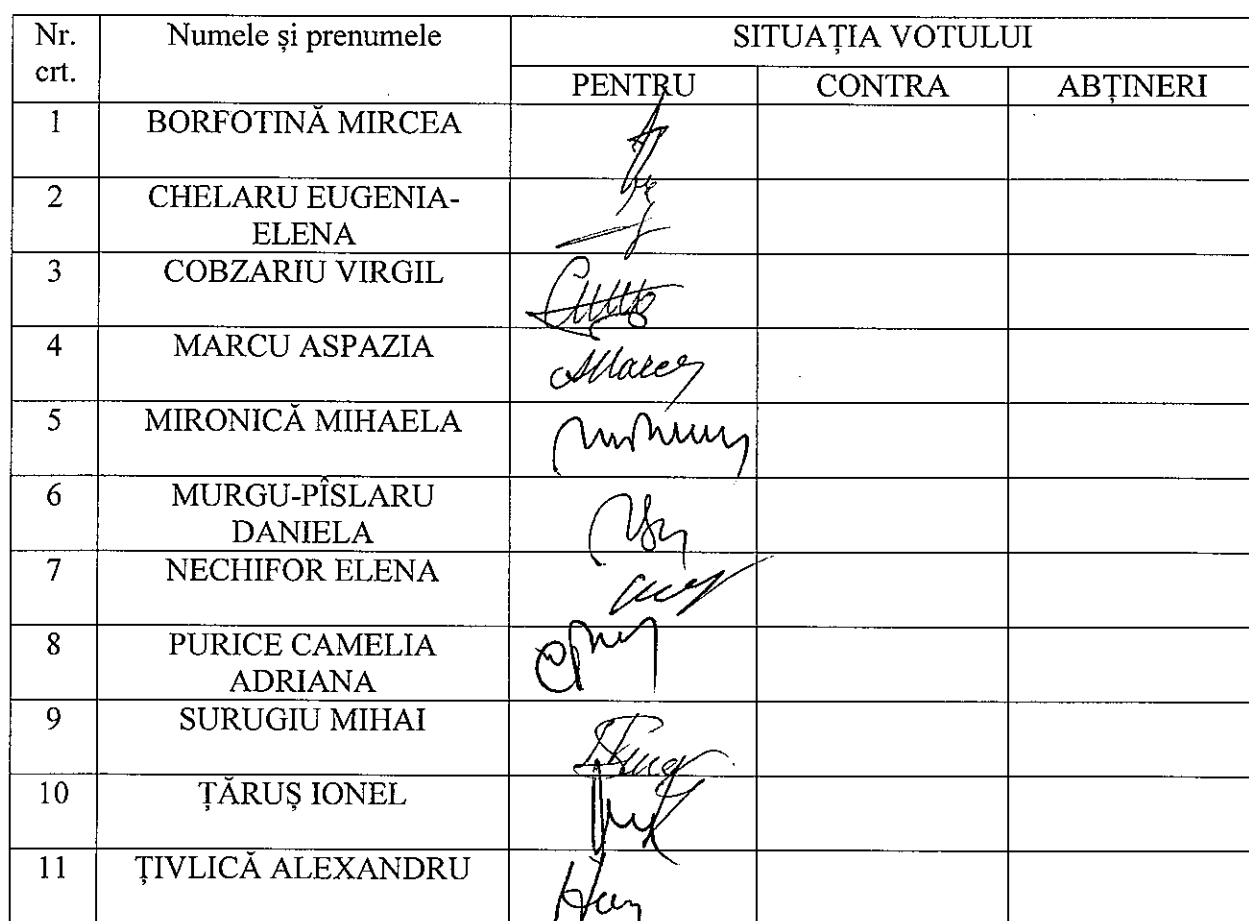 Nr. Numele și prenumele SITUAȚIA VOTULUI
crt. PENTRU CONTRA ABȚINERI
1 BORFOTINĂ MIRCEA
2 CHELARU EUGENIA-
ELENA
3 COBZARIU VIRGIL
4 MARCU ASPAZIA
AMarcu
5 MIRONICĂ MIHAELA
6 MURGU-PÎSLARU
DANIELA
7 NECHIFOR ELENA
8 PURICE CAMELIA
ADRIANA
9 SURUGIU MIHAI
10 ȚĂRUȘ IONEL
11 ȚIVLICĂ ALEXANDRU